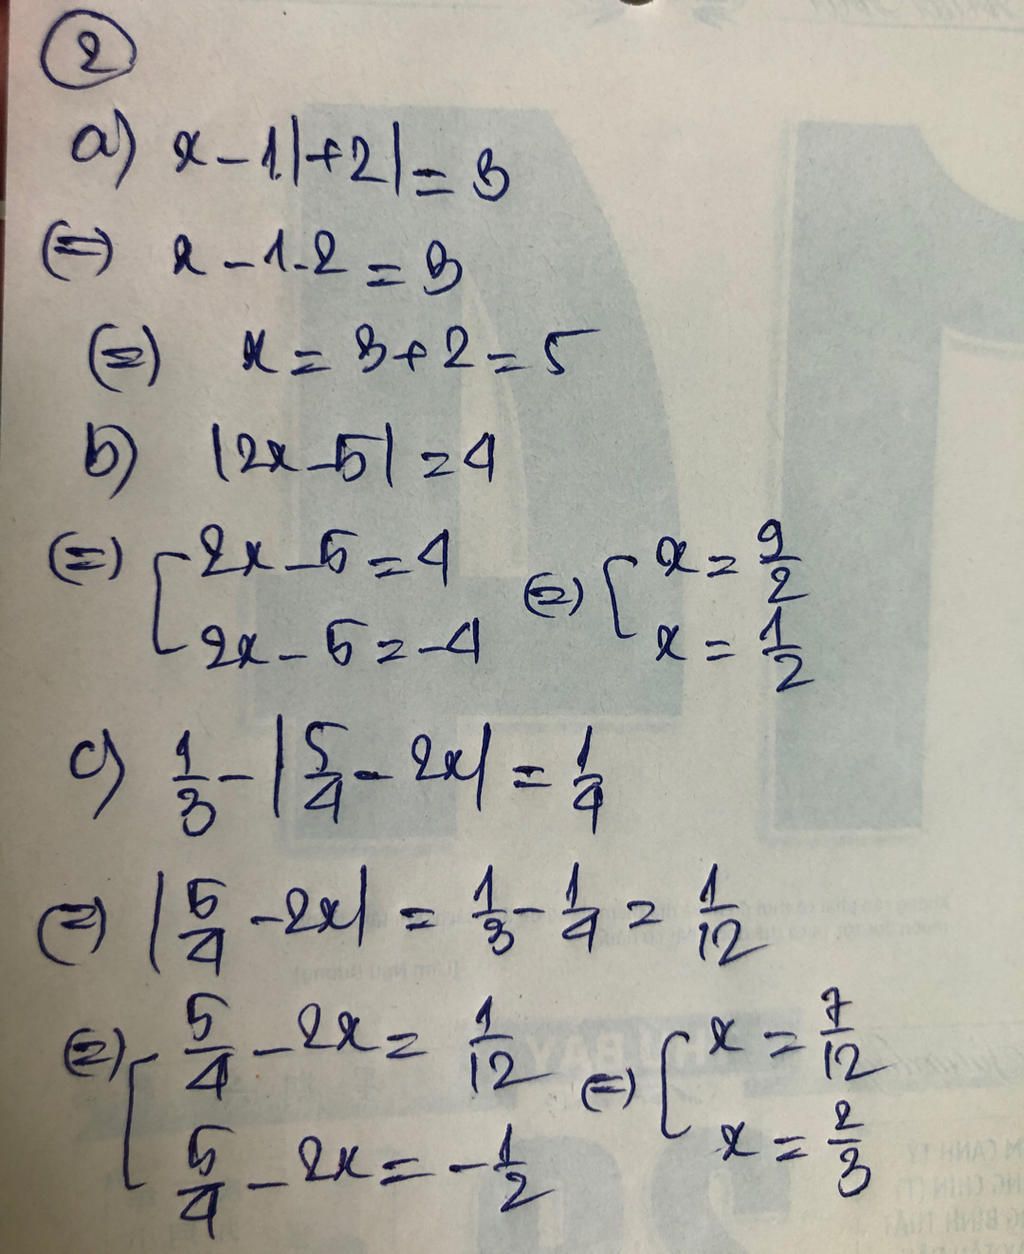 2
a) x - 1|+2| = 3
(=) x - 1 - 2 = 3
(=) x = 3 + 2 = 5
b) |2x - 5| = 4
(=) [ 2x - 5 = 4 (=) [ x = 9/2
2x - 5 = -4 x = 1/2
c) 1/3 - |5/4 - 2x| = 1/4
(=) |5/4 - 2x| = 1/3 - 1/4 = 1/12
(=) [ 5/4 - 2x = 1/12 (=) [ x = 7/12
5/4 - 2x = -1/2 x = 2/3